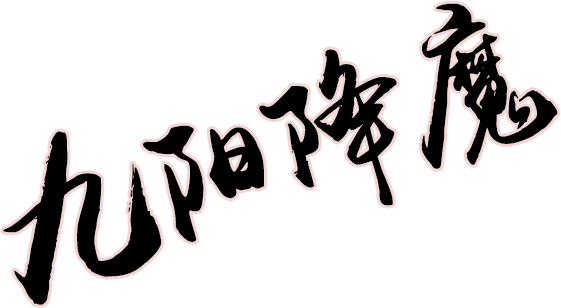 九阳降魔